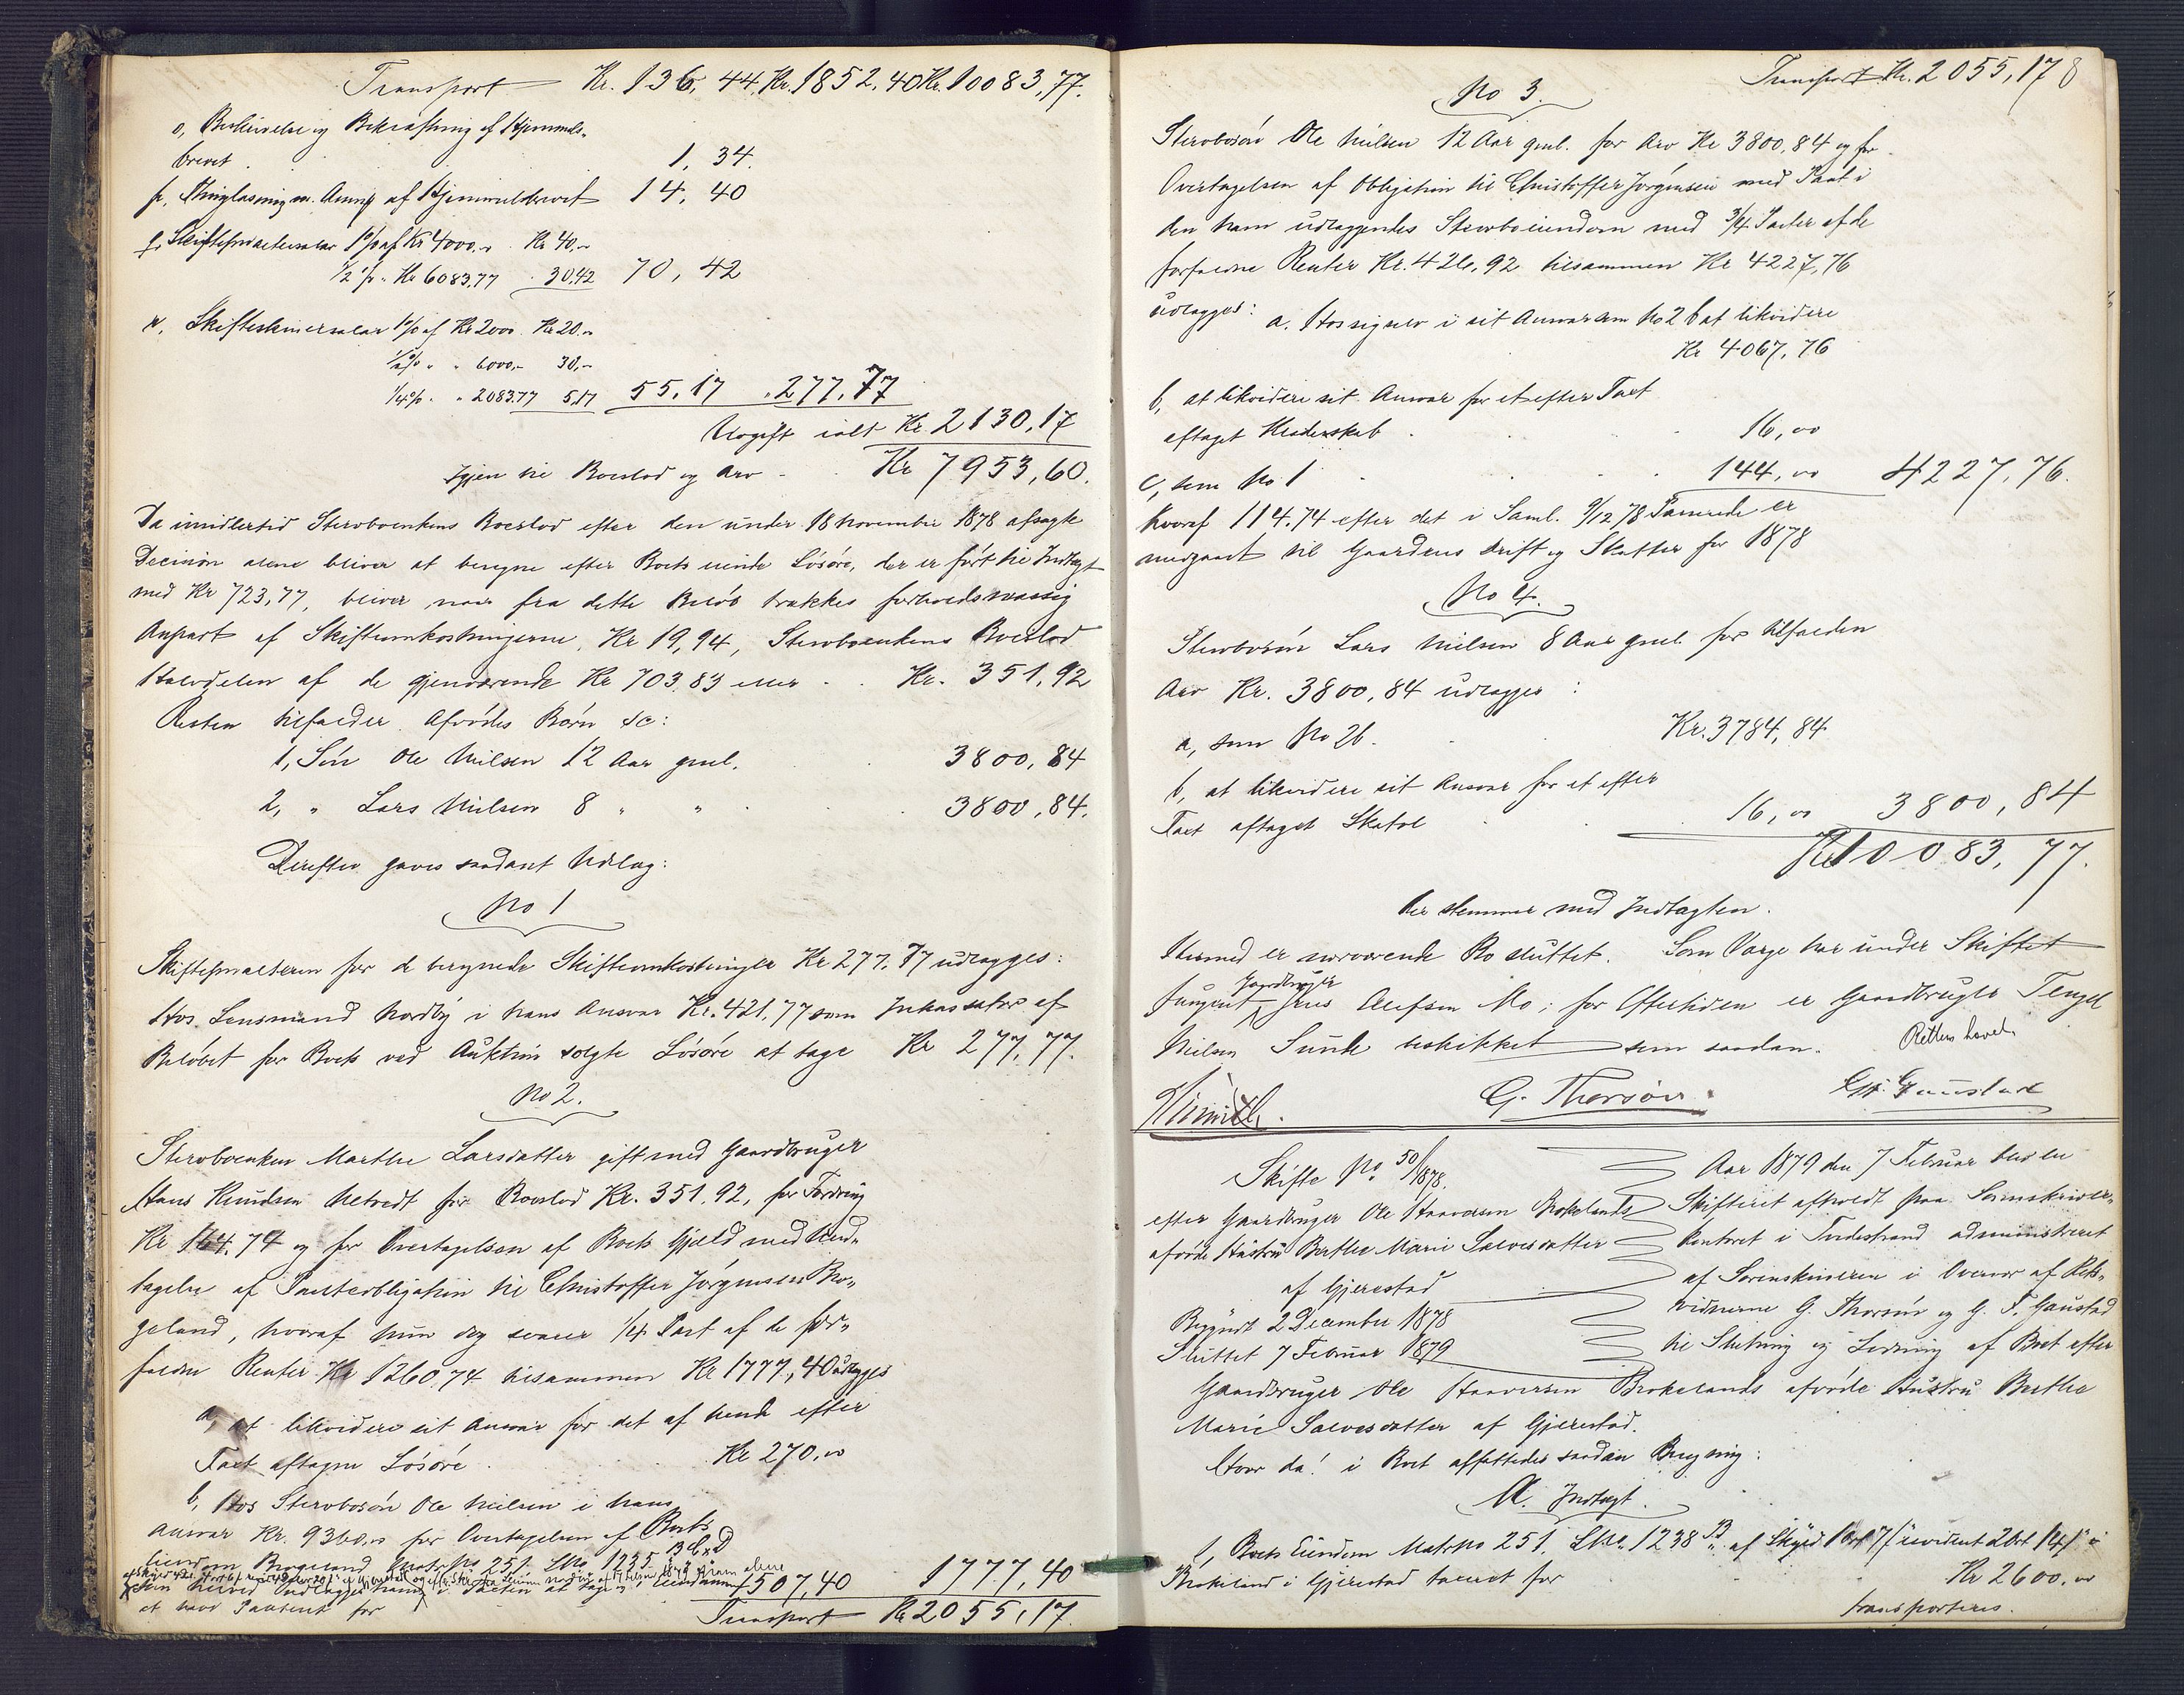 Transport Kr. 136,44. Kr. 1852,40 Kr. 10083,77.
o, Beskrivelse og Bekræftning af Hjemmels-
brevet . 1, 34.
p, Thinglæsning m. Anmp af Hjemmelsbrevet 14, 40
q, Skifteforvaltersalær 1% af Kr 4000.- Kr 40.-
1/2 % " Kr 6083.77 . 30.42 70, 42
r, Skifteskriversalær 1% af Kr 2000. Kr 20.-
1/2% " " 6000,- 30,-
1/4% " " 2083.77 5.17 55,17 . 277,77
Udgift ialt Kr. 2130,17
Igjen til Boeslod og Arv - . Kr 7953,60.
Da imidlertid Stervboenkens Boeslod efter den under 18 November 1878 afsagte
Decision alene bliver at beregne efter Boets eiende Lösöre, der er fört til Indtægt
med Kr 723,77, bliver naar fra dette Belöb trækkes forholdsmæssig
Anpart af Skifteomkostningerne, Kr 19,94, Stervboenkens Boeslod
Halvdelen af de gjenværende Kr 703,83 eller - . Kr. 351,92
Resten tilfalder Afdödes Börn sc:
1, Sön Ole Nielsen 12 Aar gml. 3800,84
2, " Lars Nielsen 8 " " . 3800,84.
Derefter gaves saadant Udlæg:
No 1
Skifteforvalteren for de beregnede Skifteomkostninger Kr 277.77 udlægges:
Hos Lensmand Nordby i hans Ansvar Kr. 421,77 som Inkassator af
Belöbet for Boets ved Auktion solgte Lösöre at tage Kr 277,77.
No 2.
Stervboenken Marthe Larsdatter gift med Gaardbruger
Hans Knudsen Hetvedt for Boeslod Kr. 351.92, for Fordring
Kr 164.74 og for Overtagelsen af Boets Gjæld med Und-
tagelse af Panteobligation til Christoffer Jörgensen Bro-
geland, hvoraf hun dog svarer 1/4 Part af de for-
faldne Renter Kr 1260.74 tilsammen Kr 1777,40 udlægges
a, at likvidere sit Ansvar for det af hende efter
Taxt aftagne Lösöre . Kr 270.00
b, Hos Stervbosön Ole Nielsen i hans
Ansvar Kr. 9360.00 for Overtagelsen af Boets
Eiendom Brogeland Matr No 251. LNo 1235 B C & D
1507,40 1777,40
at have Panteret for
Transport Kr 2055,17.
Transport Kr. 2055,17
No 3.
Stervbosön Ole Nielsen 12 Aar gml. for Arv Kr 3800,84 og for
Overtagelsen af Obligation til Christoffer Jörgensen med Pant i
den ham udlæggendes Stervboeiendom med 3/4 Parter af de
forfaldne Renter Kr. 426,92 tilsammen Kr 4227,76
udlægges: a. Hos sig selv i sit Ansvar som No 2 b at likvidere
Kr 4067,76
b, at likvidere sit Ansvar for et efter Taxt
aftaget Klædeskab . 16,00
c, som No 1 . 144,00 4227,76.
hvoraf 114.74 efter det i Saml. 9/12 78 Passerede er
medgaaet til Gaardens Drift og Skatter for 1878
No 4.
Stervbosön Lars Nielsen 8 Aar gml. for tilfalden
Arv Kr. 3800,84 udlægges :
a, som No 2b. Kr. 3784,84
b, at likvidere sit Ansvar for et efter
Taxt aftaget Skatol 16,00 3800,84
Kr 10083,77.
der stemmer med Indtægten.
Hermed er nærværende Bo sluttet. Som Værge har under Skiftet
Gaardbruger
fungeret Jens Olefsen Mo; for Eftertiden er Gaardbruger Tengel
Nielsen Sunde beskikket som saadan. Retten hævet.
G. Thorsön. G. F. Gaustad
Skifte No. 50/1878.
efter Gaardbruger Ole Haavorsen Brokelands
afdöde Hustru Berthe Marie Salvesdatter
af Gjerestad
Begyndt 2 December 1878
Sluttet 7 Februar 1879
Aar 1879 den 7 Februar blev en
Skifteret afholdt paa Sorenskriver-
kontoret i Tvedestrand administreret
af Sorenskriveren i Overvær af Rets-
vidnerne G. Thorsön og G. F. Gaustad
til Slutning og Lodning af Boet efter
Gaardbruger Ole Haavorsen Brokelands afdöde Hustru Berthe
Marie Salvesdatter af Gjerestad.
Hvor da! i Boet affattedes saadan Beregning:
A. Indtægt.
1, Boets Eiendom Matr No 251. LNo. 1238 B af Skyld 1 Ort 7 ß revideret 2 Ort 14 ß i
Brokeland i Gjerestad taxeret for Kr 2600.00
transporteres.